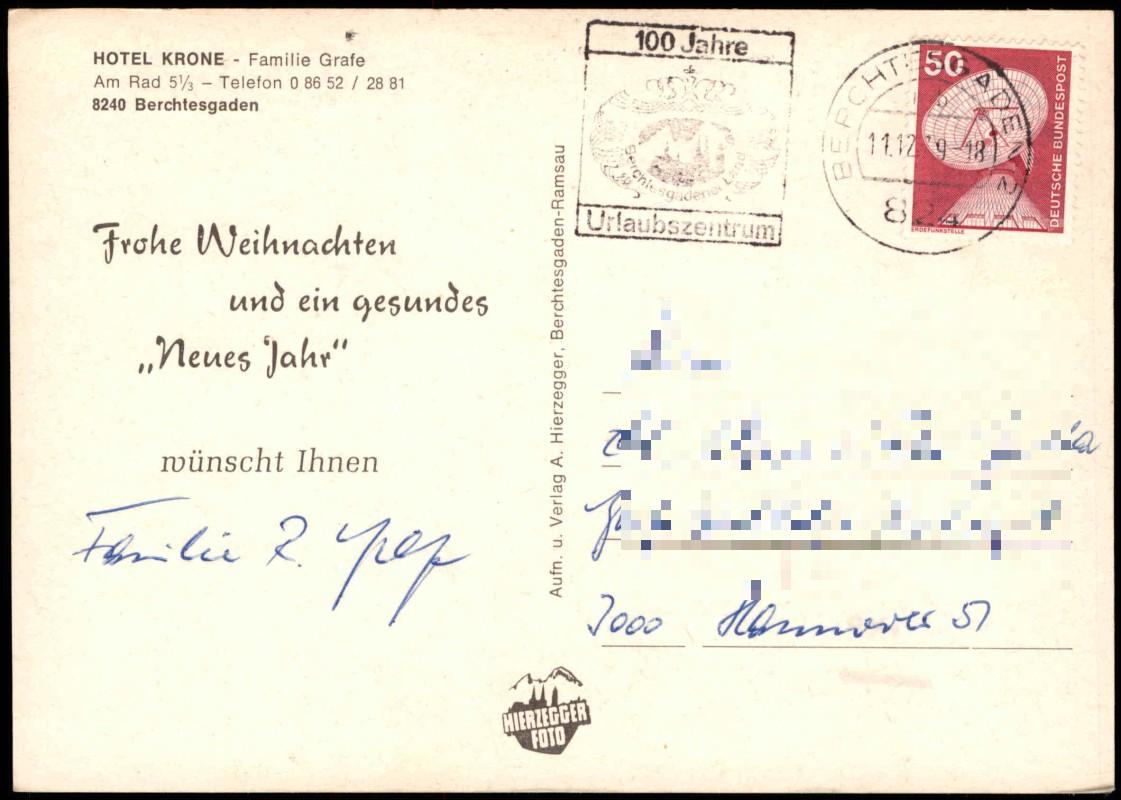 HOTEL KRONE - Familie Grafe
Am Rad 5⅓ – Telefon 0 86 52 / 28 81
8240 Berchtesgaden
Frohe Weihnachten
und ein gesundes
„Neues Jahr“
wünscht Ihnen
Familie R.
Aufn. u. Verlag A. Hierzegger, Berchtesgaden-Ramsau
HIERZEGGER
FOTO
100 Jahre
Berchtesgadener Land
Urlaubszentrum
BERCHTESGADEN
11.12. 9-18
824
50
DEUTSCHE BUNDESPOST
ERDEFUNKSTELLE
3000 Hannover 51